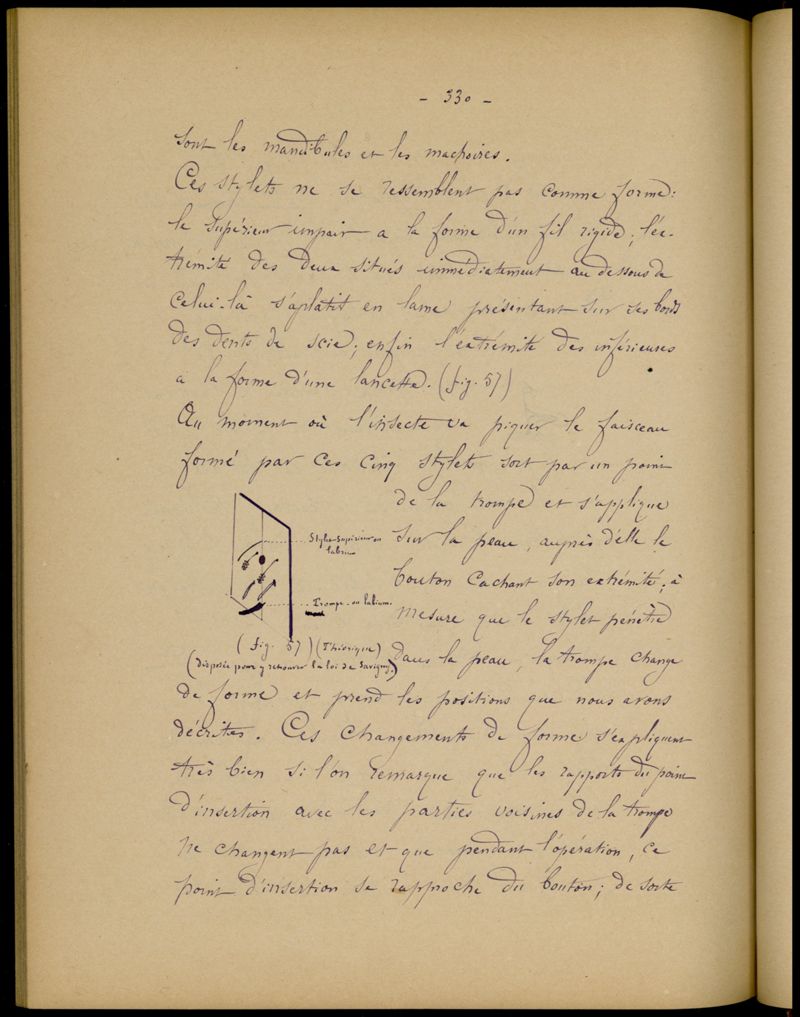 - 330 -
sont les mandibules et les machoires.
Ces stylets ne se ressemblent pas comme forme:
le supérieur impair a la forme d'un fil rigide; l'ex-
trémité des deux situés immédiatement au dessous de
celui-là s'aplatit en lame présentant sur ses bords
des dents de scie; enfin l'extrémité des inférieures
a la forme d'une lancette. (fig. 57)
Au moment où l'insecte va piquer le faisceau
formé par ces cinq stylets sort par un point
de la trompe et s'applique
sur la peau, auprès d'elle le
bouton cachant son extrémité; à
mesure que le stylet pénètre
dans la peau, la trompe change
Stylet supérieur ou
labrum
Trompe ou labium.
(fig. 57) (Théorique)
(Disposée pour y retrouver la loi de Savigny)
de forme et prend les positions que nous avons
décrites. Ces changements de forme s'expliquent
très bien si l'on remarque que les rapports du point
d'insertion avec les parties voisines de la trompe
ne changent pas et que pendant l'opération, ce
point d'insertion se rapproche du bouton; de sorte